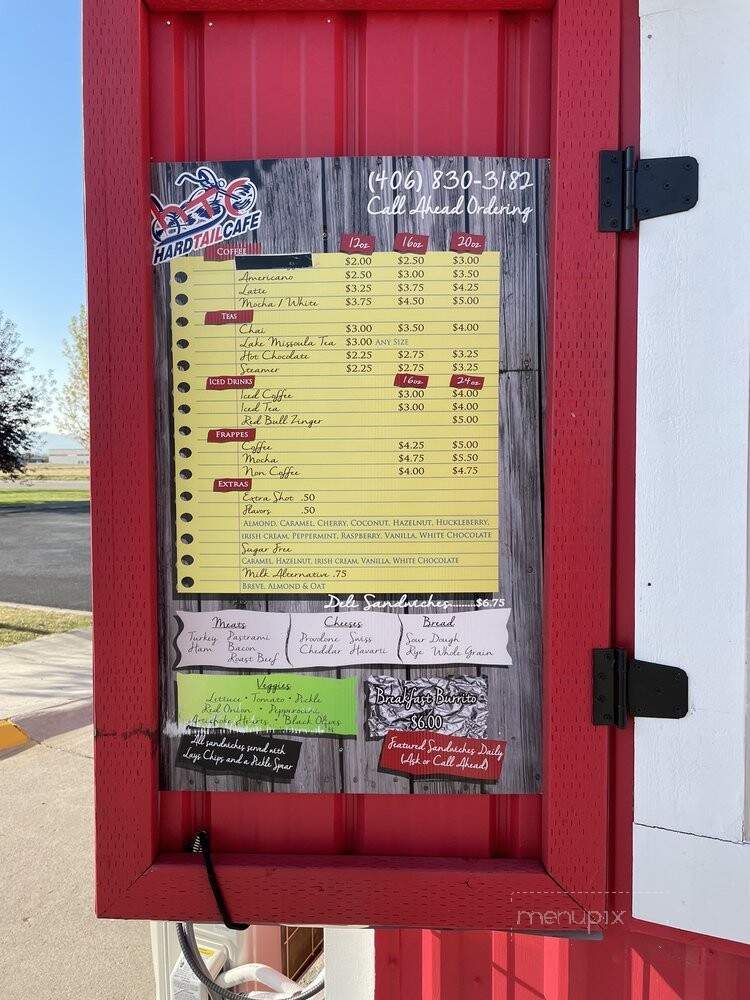 (406) 830-3182
Call Ahead Ordering
HTC
HARDTAILCAFE
COFFEE 12oz 16oz 20oz
$2.00 $2.50 $3.00
Americano $2.50 $3.00 $3.50
Latte $3.25 $3.75 $4.25
Mocha / White $3.75 $4.50 $5.00
TEAS
Chai $3.00 $3.50 $4.00
Lake Missoula Tea $3.00 ANY SIZE
Hot Chocolate $2.25 $2.75 $3.25
Steamer $2.25 $2.75 $3.25
ICED DRINKS 16oz 24oz
Iced Coffee $3.00 $4.00
Iced Tea $3.00 $4.00
Red Bull Zinger $5.00
FRAPPES
Coffee $4.25 $5.00
Mocha $4.75 $5.50
Non Coffee $4.00 $4.75
EXTRAS
Extra Shot .50
Flavors .50
ALMOND, CARAMEL, CHERRY, COCONUT, HAZELNUT, HUCKLEBERRY,
IRISH CREAM, PEPPERMINT, RASPBERRY, VANILLA, WHITE CHOCOLATE
Sugar Free
CARAMEL, HAZELNUT, IRISH CREAM, VANILLA, WHITE CHOCOLATE
Milk Alternative .75
BREVE, ALMOND & OAT
Deli Sandwiches.........$6.75
Meats
Turkey Pastrami
Ham Bacon
Roast Beef
Cheeses
Provolone Swiss
Cheddar Havarti
Bread
Sour Dough
Rye Whole Grain
Veggies
Lettuce • Tomato • Pickle
Red Onion • Pepperocini
Artichoke Hearts • Black Olives
Breakfast Burrito
$6.00
All sandwiches served with
Lays Chips and a Pickle Spear
Featured Sandwiches Daily
(Ask or Call Ahead)
menupix